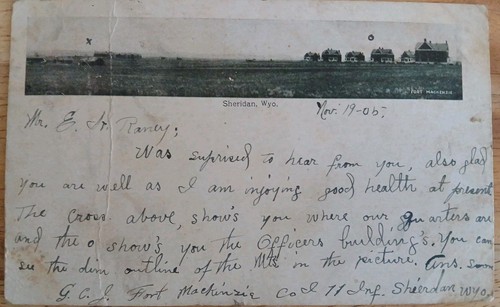 FORT MACKENZIE
Sheridan, Wyo.
Nov. 19-05.
Mr. E. Raney;
Was suprised to hear from you, also glad
you are well as I am injoying good health at present
The cross above, show's you where our quarters are
and the o show's, you the Officers building's. You can
see the dim outline of the Mts in the picture. Ans. soon
G.C.J. Fort Mackenzie Co I 11 Inf. Sheridan Wyo.